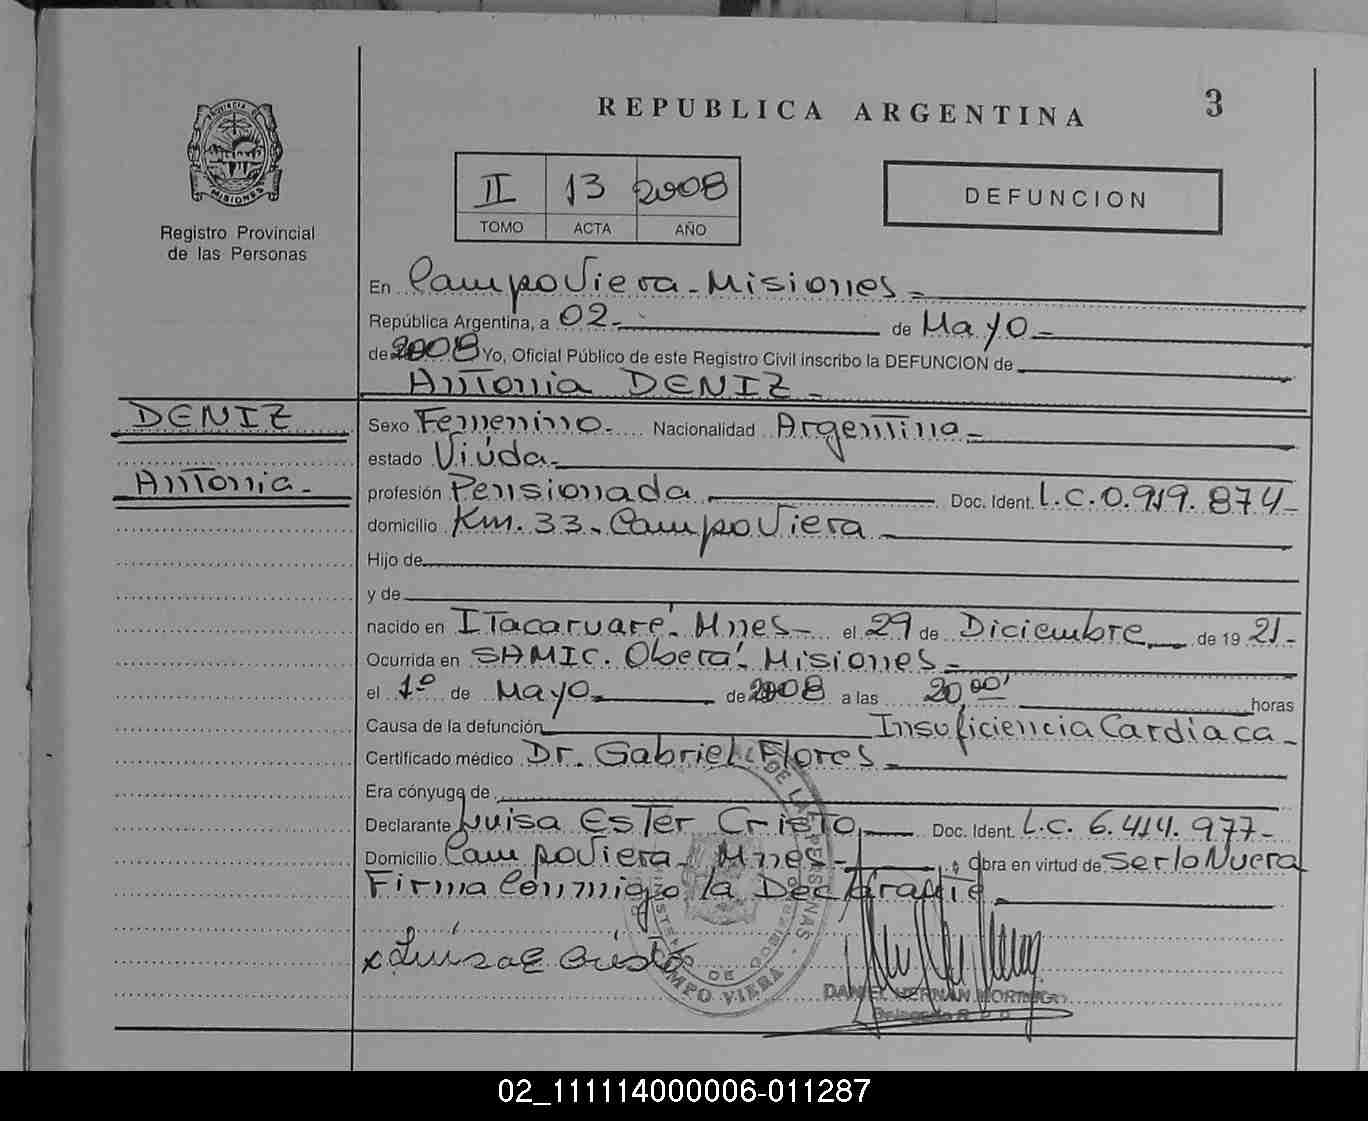 REPUBLICA ARGENTINA
3
PROVINCIA DE
MISIONES
Registro Provincial
de las Personas
II 13 2008
TOMO ACTA AÑO
DEFUNCION
En Campo Viera - Misiones -
República Argentina, a 02 - de Mayo -
de 2008 Yo, Oficial Público de este Registro Civil inscribo la DEFUNCION de
Antonia DENIZ -
DENIZ
Antonia -
Sexo Femenino - Nacionalidad Argentina -
estado Viúda -
profesión Pensionada Doc. Ident. L.C. 0.919.874 -
domicilio Km. 33 - Campo Viera -
Hijo de
y de
nacido en Itacaruaré - Mnes - el 29 de Diciembre de 19 21 -
Ocurrida en SAMIC. Oberá - Misiones -
el 1º de Mayo - de 2008 a las 20,00 horas
Causa de la defunción Insuficiencia Cardiaca -
Certificado médico Dr. Gabriel Flores -
Era cónyuge de
Declarante Luisa Ester Cristo, Doc. Ident. L.C. 6.414.977 -
Domicilio Campo Viera - Mnes - obra en virtud de ser la Nuera
Firma Conmigo la Declarante -
x Luisa E Cristo
DE LAS PERSONAS -
MINISTERIO DE GOBIERNO
CAMPO VIERA
DANIEL HERNAN
Delegado R. P. P.
02_111114000006-011287